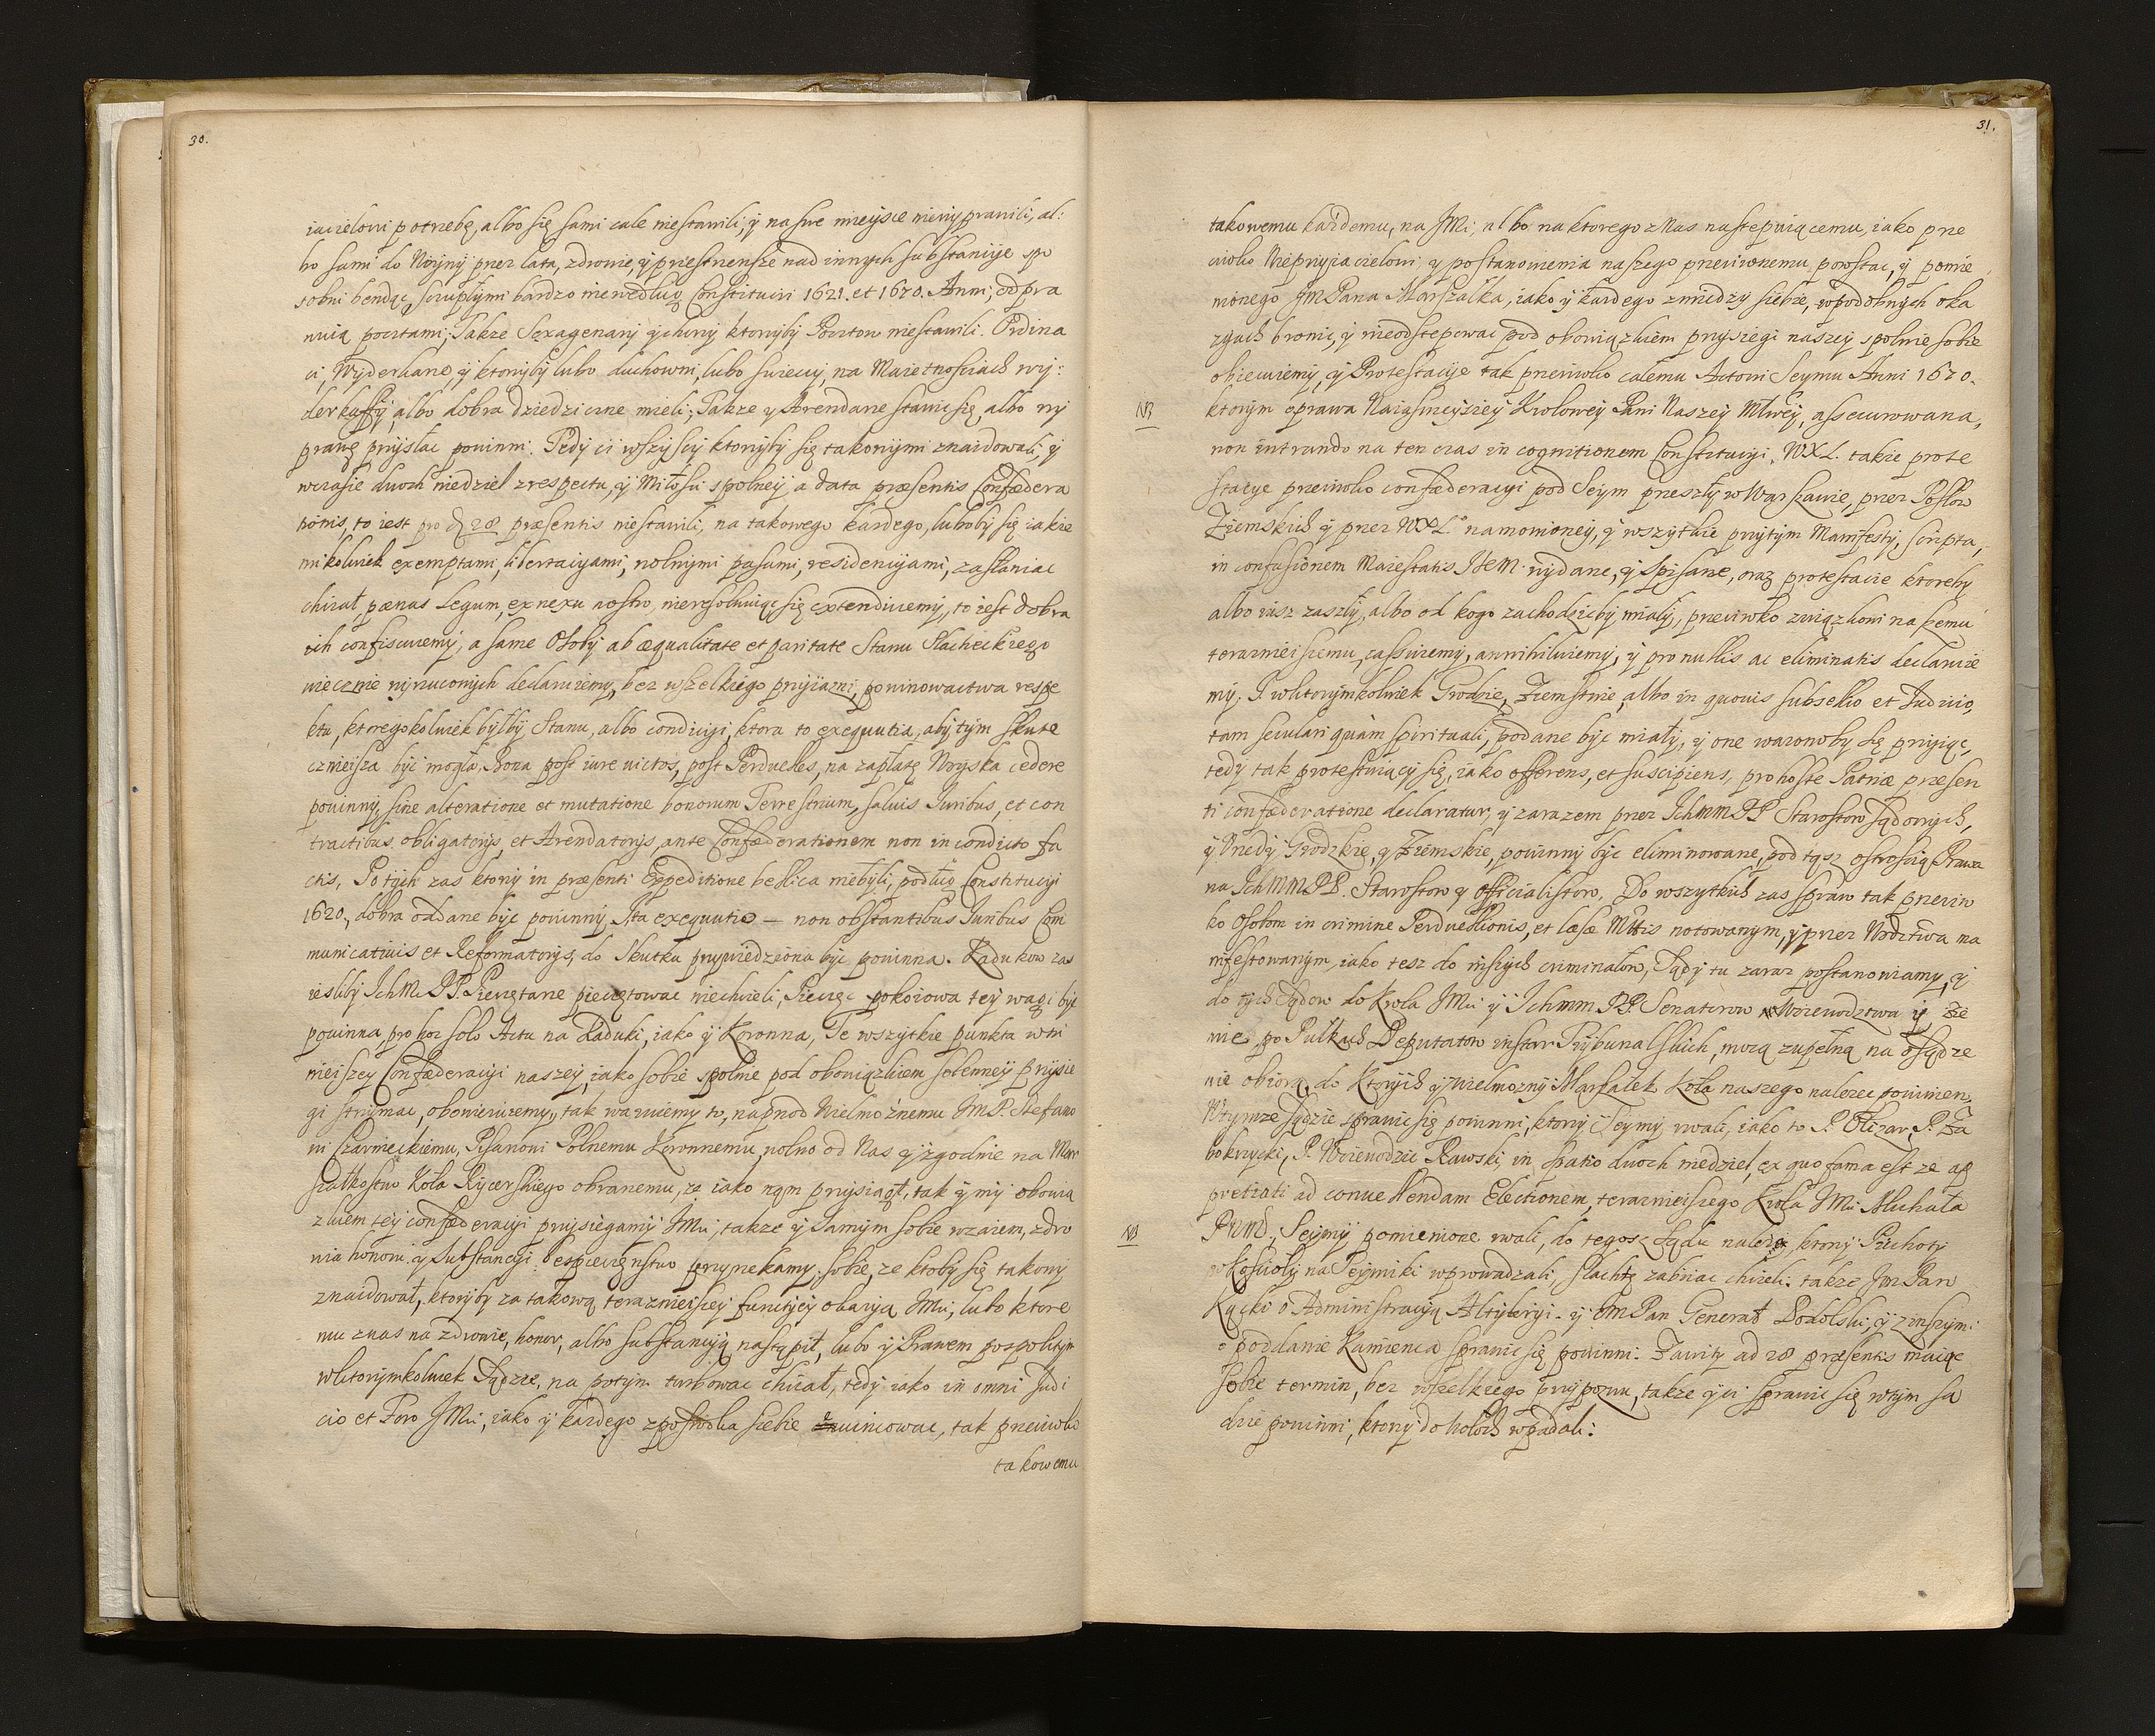 30.
iacielowi potrzebę, albo się sami cale niestawili, ÿ na swe mieysce niewyprawili, al:
bo sami do Woÿnÿ przez lata, zdrowie, ÿ przestrensze nad innych substancÿe spo
sobni bendąc, scuplÿmi bardzo niewedlug Constitucÿi 1621. et 1670. Anni, odpra
wuią pocztami; Takze Sexagenarÿ ÿ chorzÿ ktorzÿbÿ Pocztow niestawili. Ordina
ci, Wÿderkane ÿ ktorzÿbÿ lubo duchowni, lubo swieccy, na Maietnosciach wÿ:
derkaffÿ, albo dobra dziedziczne mieli; Takze y Arendane stawic się albo wÿ
prawę przÿslac powinni. Tedÿ ci wszÿscÿ ktorzÿbÿ się takowÿmi znaidowali, ÿ
wczasie dwoch niedziel z respectu, ÿ Miłosci spolneÿ a data præsentis Confædera
tionis, to iest pro d 28 præsentis niestawili, na takowego kazdego, lubobÿ się iakie
mikolwiek exemptami, libertacÿami, wolnÿmi pasami, residencÿami, zaslaniac
chciał, pænas Legum, ex nexu nostro, nieresolwuiąc się extenduiemÿ, to iest dobra
ich confiscuiemÿ, a same Osobÿ ab æqualitate et paritate Stanu Slacheckiego
wiecznie wÿrzuconÿch declaruiemÿ, bez wszelkiego przÿiazni, powinowactwa respe
ktu, ktoregokolwiek bÿlbÿ Stanu, albo condicÿi, ktora to exequutia, abÿ tÿm skute
cznieÿsza bÿc mogła, Bona post iure victos, post Perduelles, na zapłatę Woÿska cedere
powinnÿ, sine alteratione et mutatione bonorum Terrestrium, saluis Iuribus, et con
tractibus obligatorÿs, et Arendatorÿs, ante Confæderationem non in condicto fa
ctis, Po tÿch zas ktorzÿ in præsenti Expeditione bellica niebÿli, podług Constitucÿi
1620, dobra oddane bÿc powinnÿ, Ita exequutio – non obstantibus Iuribus Com
municativis et Reformatorÿs, do skutku przÿwiedziona bÿc powinna. Kadukow zas
iesliby IchM. PP. Pieczętarze pieczętowac niechcieli, Pieczęc pokoiowa teÿ wagi bÿc
powinna, pro hoc solo Actu na Kaduki, iako ÿ Koronna, Te wszÿtkie punkta w ni
nieiszeÿ Confæderacÿi naszeÿ, iako sobie spolnie pod obowiązkiem solenneÿ przÿsie
gi strzÿmac, obowiezuiemÿ, tak waruiemÿ to, naprzod Wielmoznemu JmP. Stefano
wi Czarnieckiemu, Pisarzowi Polnemu Koronnemu, wolno od Nas ÿ zgodnie na Mar
szałkostwo Koła Rÿcerskiego obranemu, ze iako nąm przÿsiągł, tak ÿ mÿ obowią
zkiem teÿ confæderacÿi przÿsiegamÿ JMci, takze ÿ Samÿm sobie wzaiem, zdro
wia honoru ÿ Substancÿi bespieczenstwo przÿrzekamy sobie, ze ktobÿ się takowÿ
znaidował, ktorÿbÿ za takową terazniesszeÿ functiÿeÿ okazÿą JMci, lubo ktore
mu znas na zdrowie, honor, albo substancÿą nastąpił, lubo ÿ Prawem pospolitÿm
wktorÿmkolwiek Sądzie, na potÿm turbowac chciał, tedÿ iako in omni Iudi
cio et Foro JMci, iako ÿ kazdego zpośrodka siebie euincowac, tak przeciwko
takowemu
31.
takowemu każdemu, na JMci, albo na ktorego z Nas nastepuiącemu, iako prze
ciwko Nieprzyiacielowi, y postanowienia naszego przeciwnemu, powstac, ÿ pomie
nionego JmPana Marszalka, iako ÿ kazdego zmiedzy siebie, w podobnych oka
zyach bronic, ÿ nieodstepowac pod obowiązkiem przysiegi naszeÿ spolnie sobie
obiecuiemÿ, ÿ Protestacÿe tak przeciwko całemu Actowi Seymu Anni 1670.
NB ktorÿm oprawa Naiasnieyszeÿ Krolowey Pani Naszeÿ Mlwey, assecurowana,
non intrando na ten czas in cognitionem Constitucÿi, WXL. takie prote
stacye przeciwko confæderacÿi pod Seÿm przeszłÿ w Warszawie, przez Posłow
Ziemskich ÿ przez WXL. namowioneÿ, ÿ wszÿtkie przytym Manifesty, scripta,
in confusionem Maiestatis JKM. wÿdane, ÿ spisane, oraz protestacie ktoreby
albo iusz zaszłÿ, albo od kogo zachodzicbÿ miałÿ, przeciwko związkowi naszemu
terazniesszemu, cassuiemy, annihiluiemÿ, ÿ pro nullis ac eliminatis declaruie
mÿ. I wktorymkolwiek Grodzie, Ziemstwie, albo in quovis subsellio et Iudicio,
tam seculari quàm spirituali, podane bÿc miałÿ, ÿ one wazonoby się prziąc,
tedÿ tak protestuiącÿ się, iako offerens, et suscipiens, pro hoste Patriæ præsen
ti confæderatione declaratur, ÿ zarazem przez Ichmm PP Starostow sądowych,
ÿ Urzedÿ Grodzkie, ÿ Ziemskie, powinny bÿc eliminowane, pod tąsz ostrością Prawa
na Ichmm PP. Starostow y officialistow. Do wszytkich zas spraw tak przeciw
ko Osobom in crimine Perduellionis, et læsæ Mttis notowanym, ÿ przez Wodztwa ma
nifestowanym, iako tesz do inszych criminałow, Sądÿ tu zaraz postanowiamy, ÿ
do tych sądow do Krola JMci ÿ Ichmm PP. Senatorow Woiewodztwa ÿ Zie
mie po Pułkach Deputatow instar Trÿbunalskich, mocą zupełną na osądze
nie obiorą, do ktorÿch ÿ wielmoznÿ Marszałek Koła naszego nalezec powinien.
Wtymze sądzie sprawic się powinni, ktorzÿ Seymy rwali, iako to P. Olizar, P. Za
bokrzycki, P. Woiewodzic Rawski, in spatio dwoch niedziel, ex quo fama est ze ap
pretiati ad conuellendam Electionem, terazniesszego Krola JMci Michała
NB PNMS., Seymÿ pomienione rwali, do tegosz sądu nalezą, ktorzÿ Piechoty
w koscioły na Seymiki wprowadzali, slachtę zabiiac chcieli. takze Jm Pan
Kącki o Administracyą Altyleryi. ÿ Jm Pan Generał Podolski, ÿ z inszymi
o poddanie Kamienca sprawic się powinni. Zawity ad 28 præsentis maiąc
sobie termin, bez wszelkiego przÿpozwu, takze ÿ ci sprawic się wtym są
dzie powinni, ktorzÿ do wpadali: